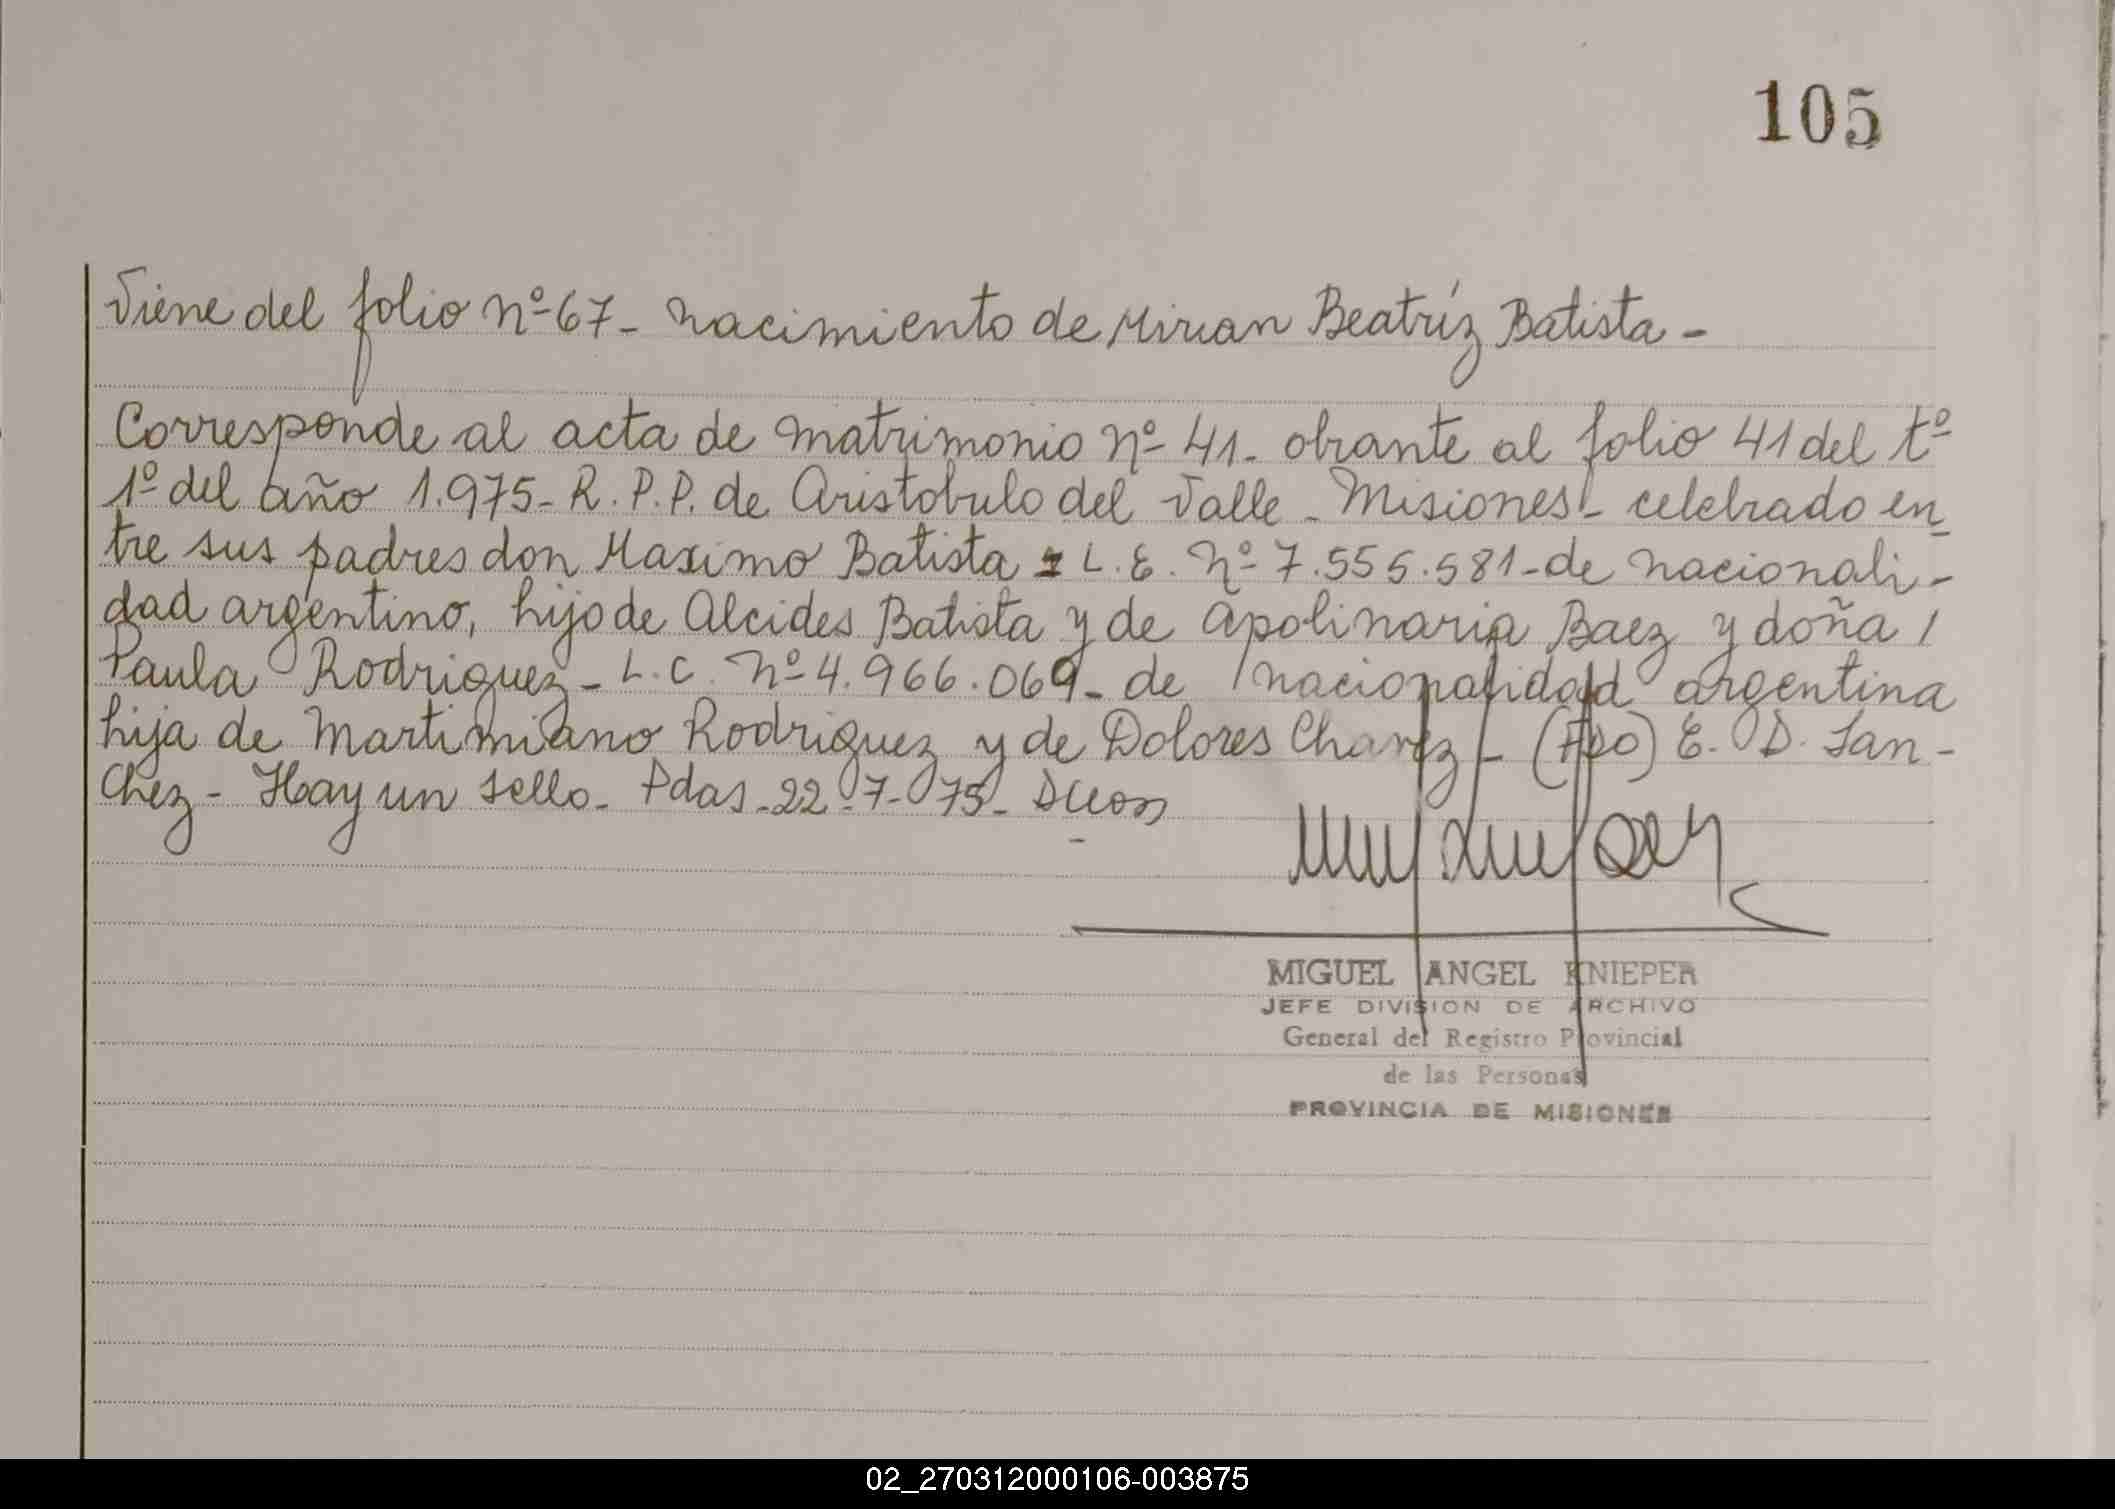 105
Viene del folio nº 67 - nacimiento de Mirian Beatríz Batista -
Corresponde al acta de matrimonio nº 41 - obrante al folio 41 del tº
1º del año 1.975 - R.P.P. de Aristobulo del Valle - Misiones - celebrado en
tre sus padres don Maximo Batista - L.E. nº 7.555.581 - de nacionali-
dad argentino, hijo de Alcides Batista y de Apolinaria Baez y doña /
Paula Rodriguez - L.C. nº 4.966.069 - de nacionalidad argentina
hija de Martimiano Rodriguez y de Dolores Chavez - (Fdo) E. D. San-
chez - Hay un sello - Pdas - 22 - 7 - 75 -
MIGUEL ANGEL KNIEPER
JEFE DIVISION DE ARCHIVO
General del Registro Provincial
de las Personas
PROVINCIA DE MISIONES
02_270312000106-003875